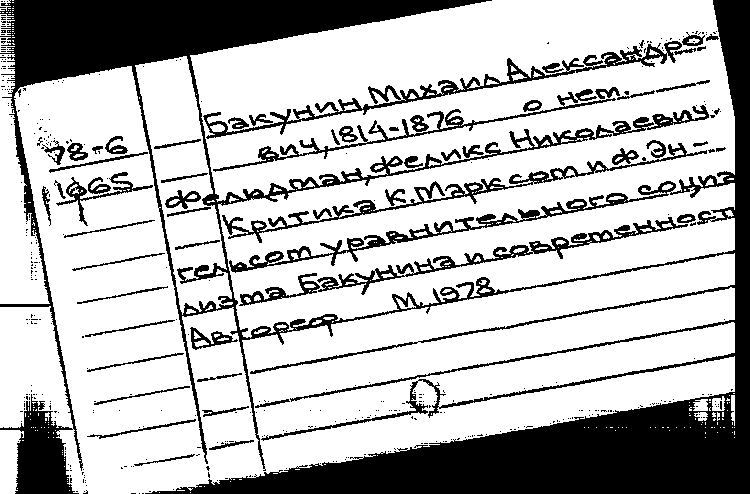 Бакунин, Михаил Александро-
78-6
вич, 1814-1876, о нем.
1665
Фельдман, Феликс Николаевич.
Критика К. Марксом и Ф. Эн-
гельсом уравнительного социа
лизма Бакунина и современност
Автореф. М., 1978.